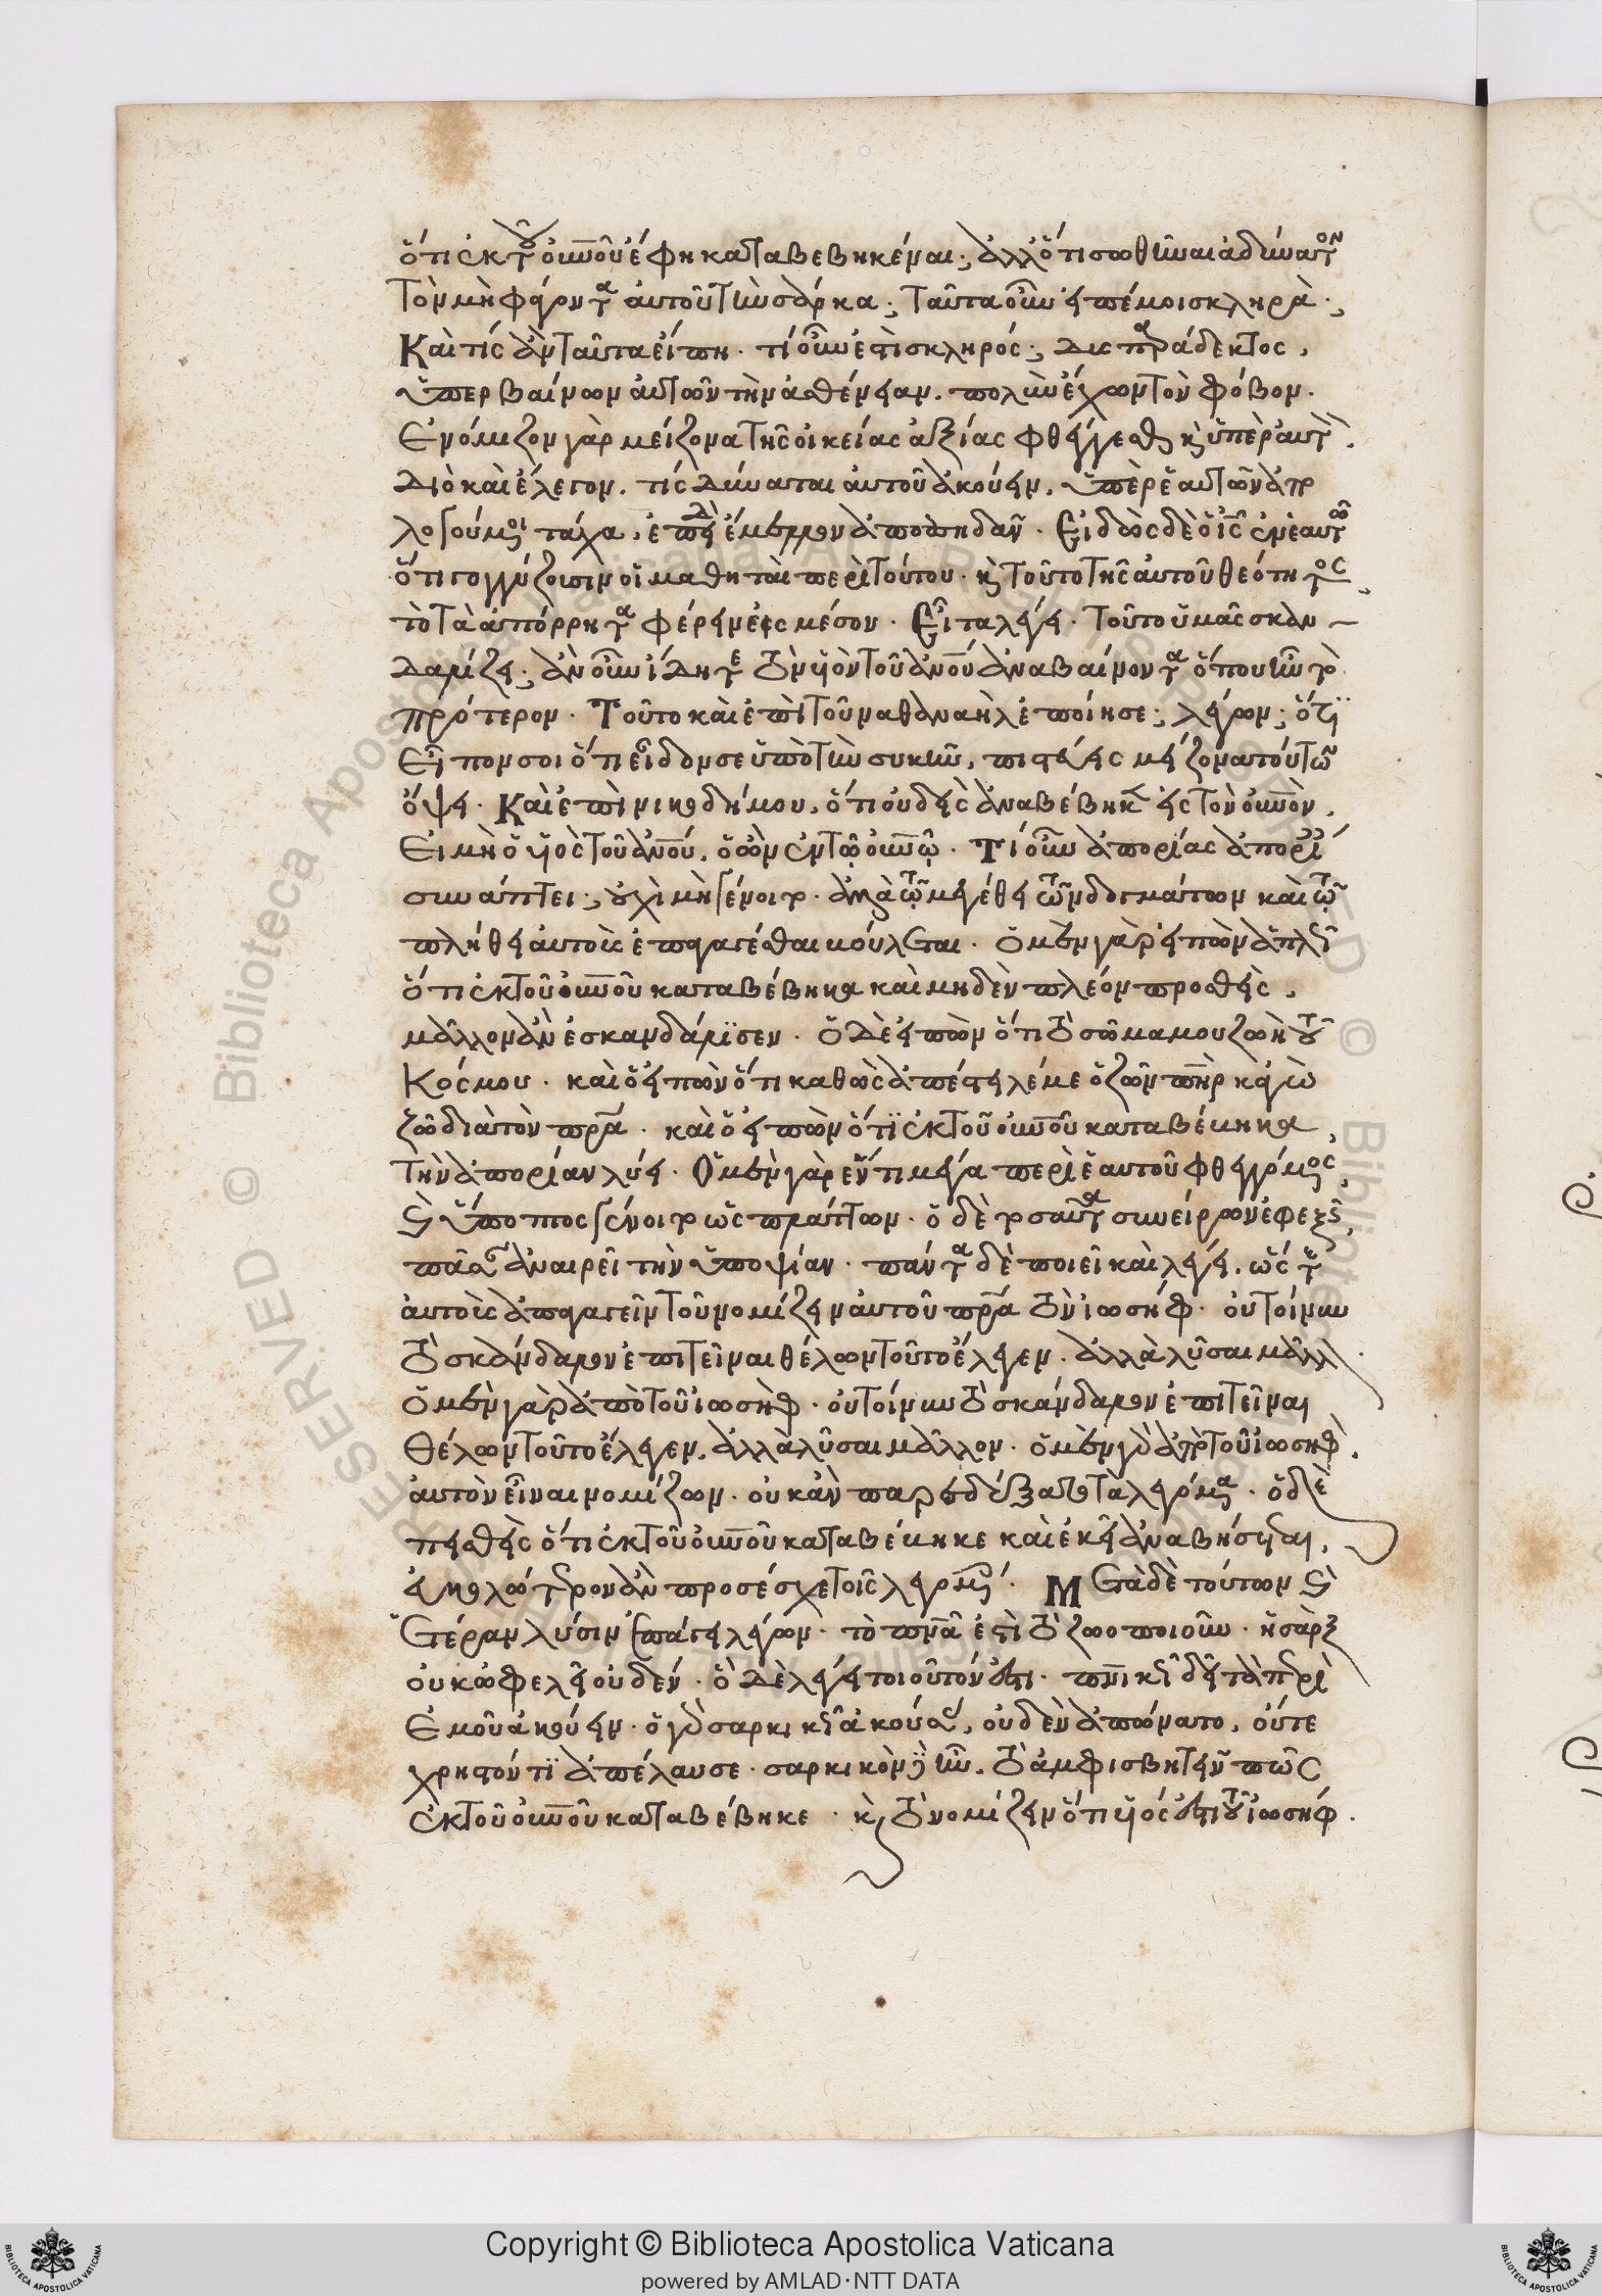 ὅτι ἐκ τοῦ οὐνοῦ ἔφη καταβεβηκέναι; ἀλλ' ὅτι σωθῆναι ἀδύνατον
τὸν μὴ φάγοντα αὐτοῦ τὴν σάρκα; ταῦτα οὖν εἰπέ μοι σκληρὰ;
Καὶ τίς ἂν ταῦτα εἴπῃ. τί οὖν ἐστι σκληρός; δυσπαράδεκτος,
ὑπερβαίνων αὐτῶν τὴν ἀσθένειαν. πολὺν ἔχων τὸν φόβον.
Ἐνόμιζον γὰρ μείζονα τῆς οἰκείας ἀξίας φθέγγεσθαι κ ὑπὲρ αὐτὸν.
Διὸ καὶ ἔλεγον. τίς δύναται αὐτοῦ ἀκούειν. ὑπὲρ ἑαυτῶν ἀπο
λογούμενοι τάχα, ἐπειδὴ ἔμελλον ἀποπηδᾶν. Εἰδὼς δὲ ὁ ις ἐν ἑαυτῶ
ὅτι γογγύζουσιν οἱ μαθηταὶ περὶ τούτου. κ τοῦτο τῆς αὐτοῦ θεότητος
τὸ τὰ ἀπόρρητα φέρειν εἰς μέσον. Εἶτα λέγει. Τοῦτο ὑμᾶς σκαν
δαλίζει; ἂν οὖν ἴδητε τὸν υἱὸν τοῦ ἀνοῦ ἀναβαίνοντα ὅπου ἦν τὸ
πρότερον. Τοῦτο καὶ ἐπὶ τοῦ ναθαναὴλ ἐποίησε; λέγων; ὅτι
Εἶπόν σοι ὅτι εἶδόν σε ὑπὸ τὴν συκῆν, πιστεύεις μείζονα τούτων
ὄψει. Καὶ ἐπὶ νικοδήμου, ὅτι οὐδεὶς ἀναβέβηκεν εἰς τὸν οὐνὸν,
Εἰ μὴ ὁ υἱὸς τοῦ ἀνοῦ, ὁ ὢν ἐν τῶ οὐνῶ. Τί οὖν ἀπορίας ἀπορίαις
συνάπτει; οὐχὶ μὴ γένοιτο. ἀλλὰ τῶ μεγέθει τῶν δογμάτων καὶ τῶ
πλήθει αὐτοὺς ἐπαγαγέσθαι βούλεται. Ὁ μὲν γὰρ εἰπὼν ἁπλῶς
ὅτι ἐκ τοῦ οὐνοῦ καταβέβηκα καὶ μηδὲν πλέον προσθεὶς,
μᾶλλον ἂν ἐσκανδάλισεν. Ὁ δὲ εἰπὼν ὅτι τὸ σῶμα μου ζωὴ τοῦ
Κόσμου. καὶ ὁ εἰπὼν ὅτι καθὼς ἀπέστειλέ με ὁ ζῶν πηρ κἀγὼ
ζῶ διὰ τὸν πρα. καὶ ὁ εἰπὼν ὅτι ἐκ τοῦ οὐνοῦ καταβέβηκα,
Τὴν ἀπορίαν λύει. Ὁ μὲν γὰρ ἕν τι μέγα περὶ ἑαυτοῦ φθεγγόμενος,
καὶ ὕποπτος γένοιτο ὡς πλάττων. ὁ δὲ τοσαῦτα συνείρων ἐφεξῆς,
πᾶσαν ἀναιρεῖ τὴν ὑποψίαν. πάντα δὲ ποιεῖ καὶ λέγει, ὥστε
αὐτοὺς ἀπαγαγεῖν τοῦ νομίζειν αὐτοῦ πρα τὸν ἰωσήφ. οὐ τοίνυν
τὸ σκάνδαλον ἐπιτεῖναι θέλων τοῦτο ἔλεγεν. ἀλλὰ λῦσαι μᾶλλον.
Ὁ μὲν γὰρ ἀπὸ τοῦ ἰωσὴφ. οὐ τοίνυν τὸ σκάνδαλον ἐπιτεῖναι
θέλων τοῦτο ἔλεγεν, ἀλλὰ λῦσαι μᾶλλον. ὁ μὲν γὰρ ἀπὸ τοῦ ἰωσὴφ.
αὐτὸν εἶναι νομίζων. οὐκ ἂν παρεδέξατο τὰ λεγόμενα. ὁ δὲ
πεισθεὶς ὅτι ἐκ τοῦ οὐνοῦ καταβέβηκε καὶ ἐκεῖ ἀναβήσεται,
εὐκολώτερον ἂν προσέσχε τοῖς λεγομένοις. Μετὰ δὲ τούτων καὶ
Ἑτέραν λύσιν ἐπάγει λέγων. τὸ πνα ἐστὶ τὸ ζωοποιοῦν. ἡ σὰρξ
οὐκ ὠφελεῖ οὐδέν. ὃ δὲ λέγει τοιοῦτόν ἐστι. πνικῶς δεῖ τὰ περὶ
Ἐμοῦ ἀκούειν. ὁ γὰρ σαρκικῶς ἀκούσας, οὐδὲν ἀπώνατο, οὔτε
χρηστόν τι ἀπέλαυσε. σαρκικὸν δὲ ἦν, τὸ ἀμφισβητεῖν πῶς
ἐκ τοῦ οὐνοῦ καταβέβηκε. κ τὸ νομίζειν ὅτι υἱός ἐστι τοῦ ἰωσήφ.
Copyright © Biblioteca Apostolica Vaticana
powered by AMLAD·NTT DATA